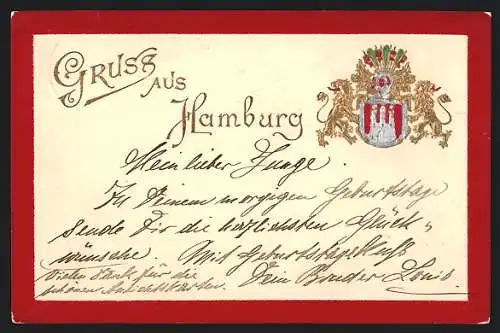 Gruss aus
Hamburg
Mein lieber Junge.
Zu Deinem morgigen Geburtstage
sende Dir die herzlichsten Glück-
wünsche. Mit Geburtstagskuss
Dein Bruder Louis.
Vielen Dank für die
schönen Ansichtskarten.